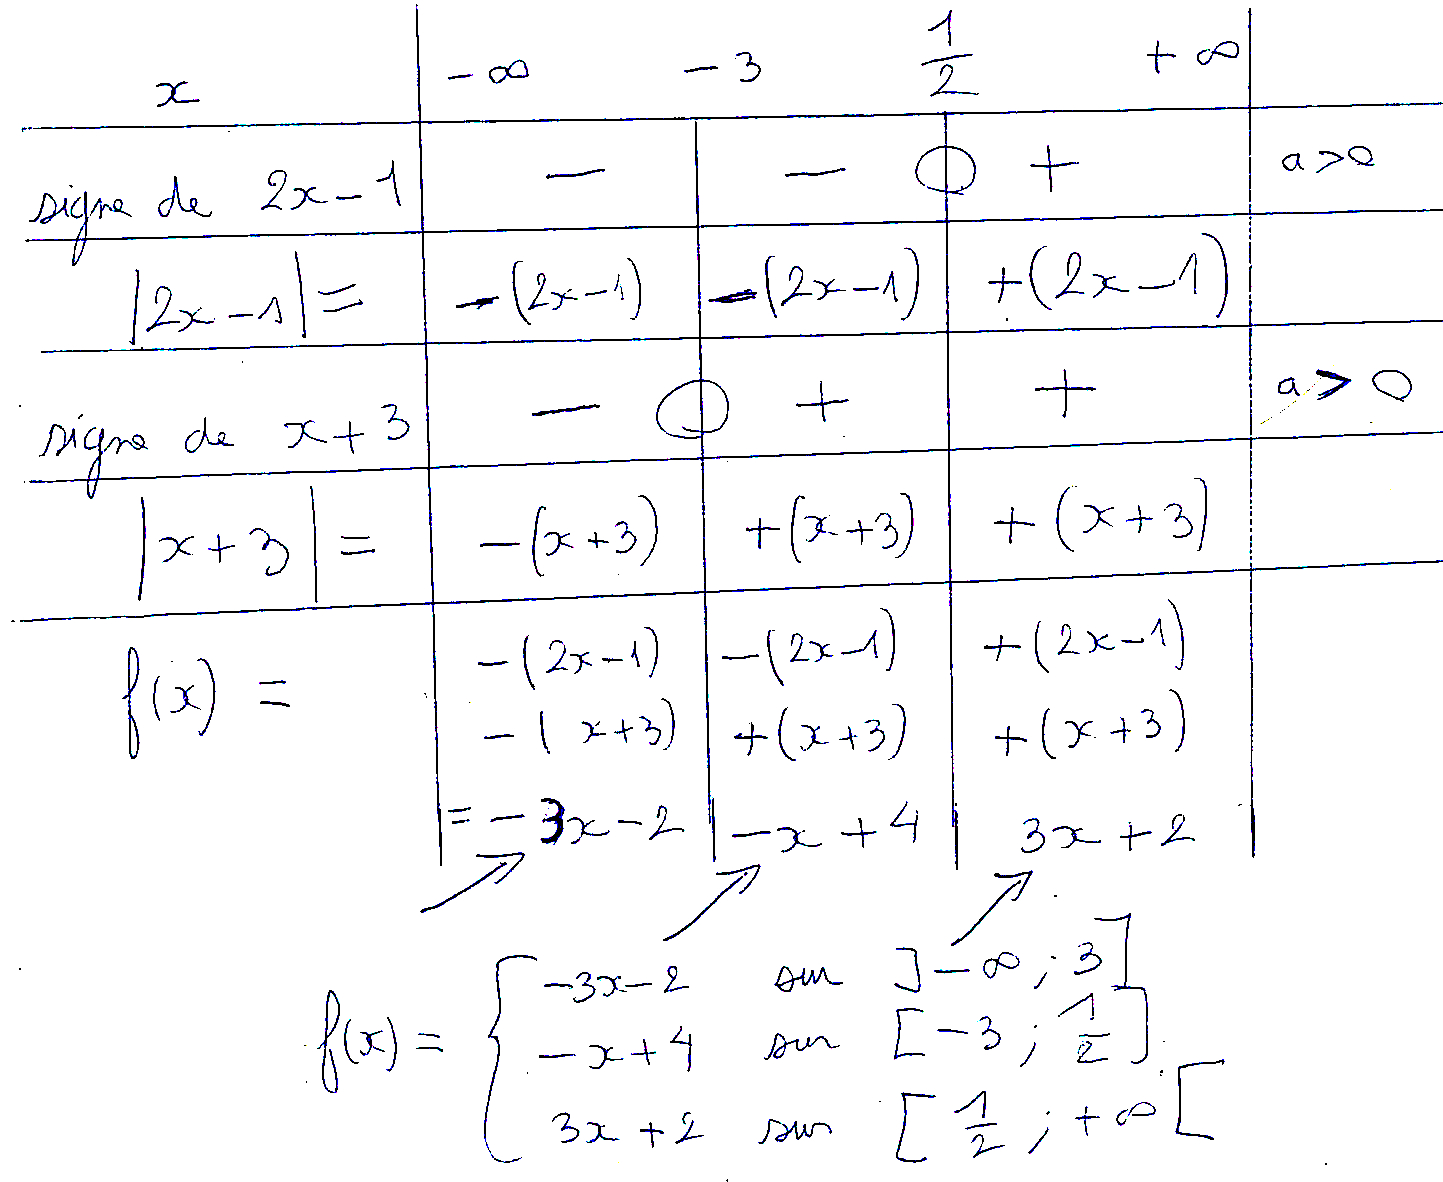 x -∞ -3 1/2 +∞
signe de 2x-1 - - 0 + a>0
|2x-1|= -(2x-1) -(2x-1) +(2x-1)
signe de x+3 - 0 + + a>0
|x+3|= -(x+3) +(x+3) +(x+3)
f(x) = -(2x-1) -(2x-1) +(2x-1)
-(x+3) +(x+3) +(x+3)
= -3x-2 -x+4 3x+2
f(x) = { -3x-2 sur ]-∞ ; 3]
-x+4 sur [-3 ; 1/2]
3x+2 sur [1/2 ; +∞[